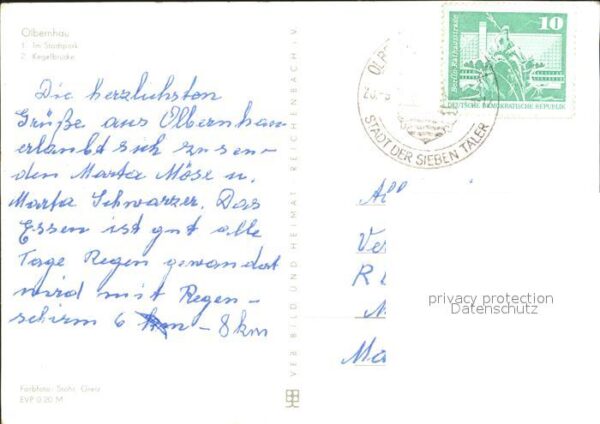 Olbernhau
1. Im Stadtpark
2. Kegelbrücke
Die herzlichsten
Grüße aus Olbernhau
erlaubt sich zu sen-
den Marta Möse u.
Marta Schwarzer. Das
Essen ist gut alle
Tage Regen gewandert
wird mit Regen-
schirm 6 km - 8 km
Farbfoto: Stohr, Greiz
EVP 0.20 M
VEB BILD UND HEIMAT REICHENBACH i. V.
STADT DER SIEBEN TÄLER
Berlin, Rathausstraße
10
DEUTSCHE DEMOKRATISCHE REPUBLIK
All
Ver
R
M
Ma
privacy protection
Datenschutz